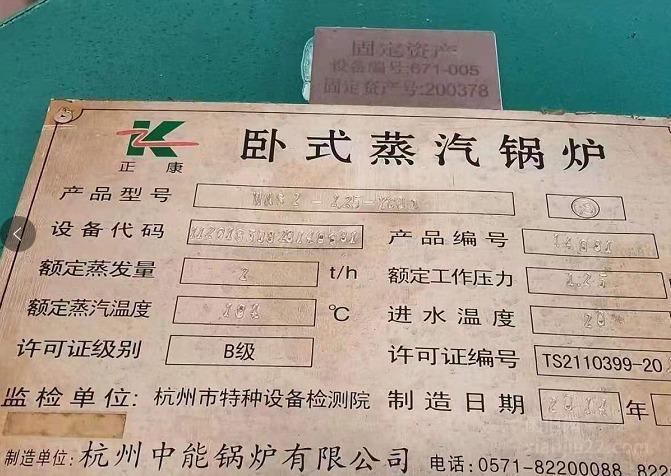 固定资产
设备编号:671-005
固定资产号:200378
正康
卧式蒸汽锅炉
产品型号
设备代码
产品编号
额定蒸发量 t/h 额定工作压力 1.25
额定蒸汽温度 ℃ 进水温度 20
许可证级别 B级 许可证编号 TS2110399-20
监检单位: 杭州市特种设备检测院 制造日期 年
制造单位: 杭州中能锅炉有限公司 电话: 0571-82200088 822